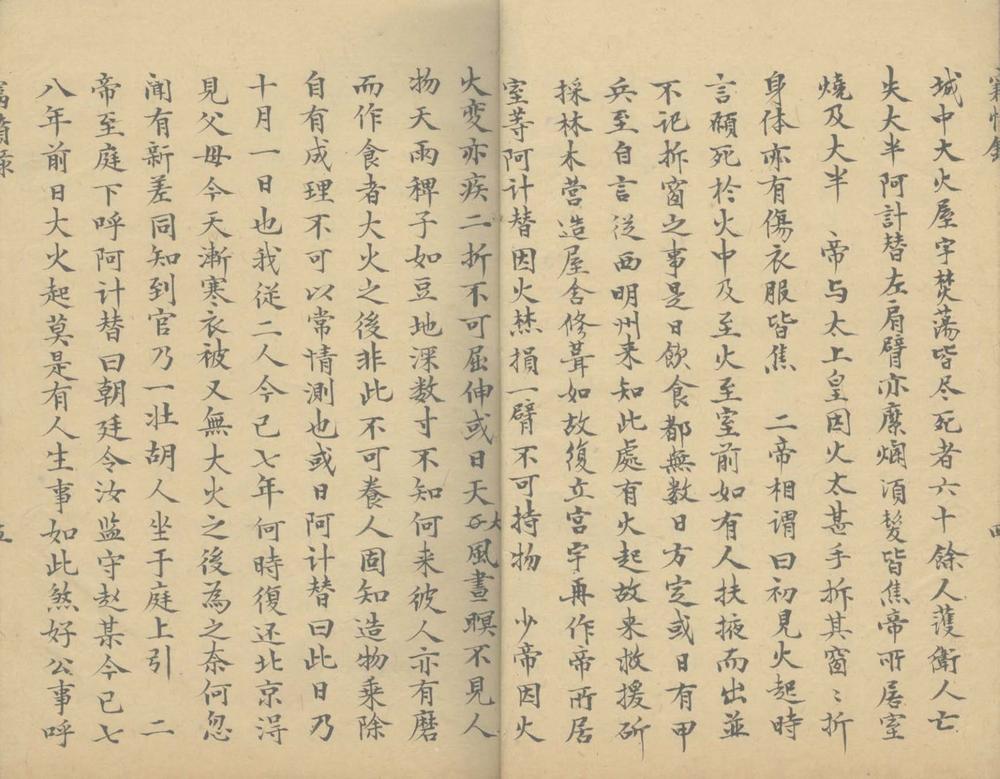 城中大火屋宇焚蕩皆尽死者六十餘人護衛人亡
失大半阿計替左肩臂亦糜爛須髮皆焦帝所居室
燒及大半　帝与太上皇因火太甚手折其窗〻折
身体亦有傷衣服皆焦　二帝相謂曰初見火起時
言願死於火中及至火至室前如有人扶掖而出並
不记拆窗之事是日飲食都無数日方定或日有甲
兵至自言従西明州来知此處有火起故来救援斫
採林木营造屋舍修葺如故復立宮宇再作帝所居
室等阿计替因火焚損一臂不可持物　少帝因火
火変亦疾二折不可屈伸或日天大风晝暝不見人
物天雨稗子如豆地深数寸不知何来彼人亦有磨
而作食者大火之後非此不可養人固知造物乗除
自有成理不可以常情測也或日阿计替曰此日乃
十月一日也我従二人今已七年何時復还北京淂
見父母今天漸寒衣被又無大火之後為之奈何忽
闻有新差同知到官乃一壮胡人坐于庭上引　二
帝至庭下呼阿计替曰朝廷令汝监守赵某今已七
八年前日大火起莫是有人生事如此煞好公事呼